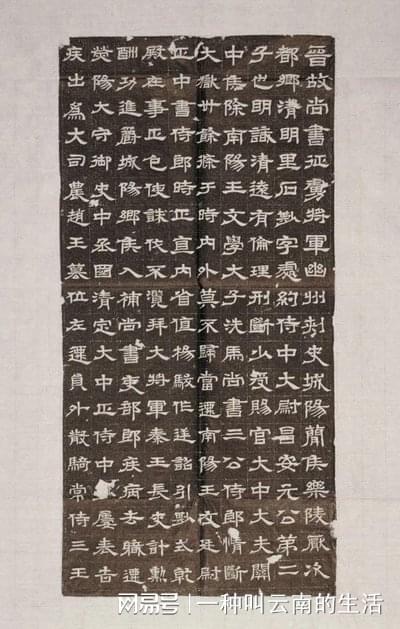 晉故尚書征虜將軍幽州刺史城陽簡侯樂陵厭次
都鄉清明里石尠字處約侍中大尉昌安元公第二
子也明識清遠有倫理刑斷少受賜官大中大夫關
中侯除南陽王文學大子洗馬尚書三公侍郎情斷
大獄卅餘條于時內外莫不歸當遷南陽王友廷尉
正中書侍郎時正直內省值楊駿作逆詔引尠式乾
殿在事正色使誅伐不濫拜大將軍秦王長史計勳
酬功進爵城陽鄉侯入補尚書吏部郎疾病去職遷
滎陽大守御史中丞國清定大中正侍中屢表告
疾出為大司農趙王簒位左遷員外散騎常侍三王
网易号 | 一种叫云南的生活